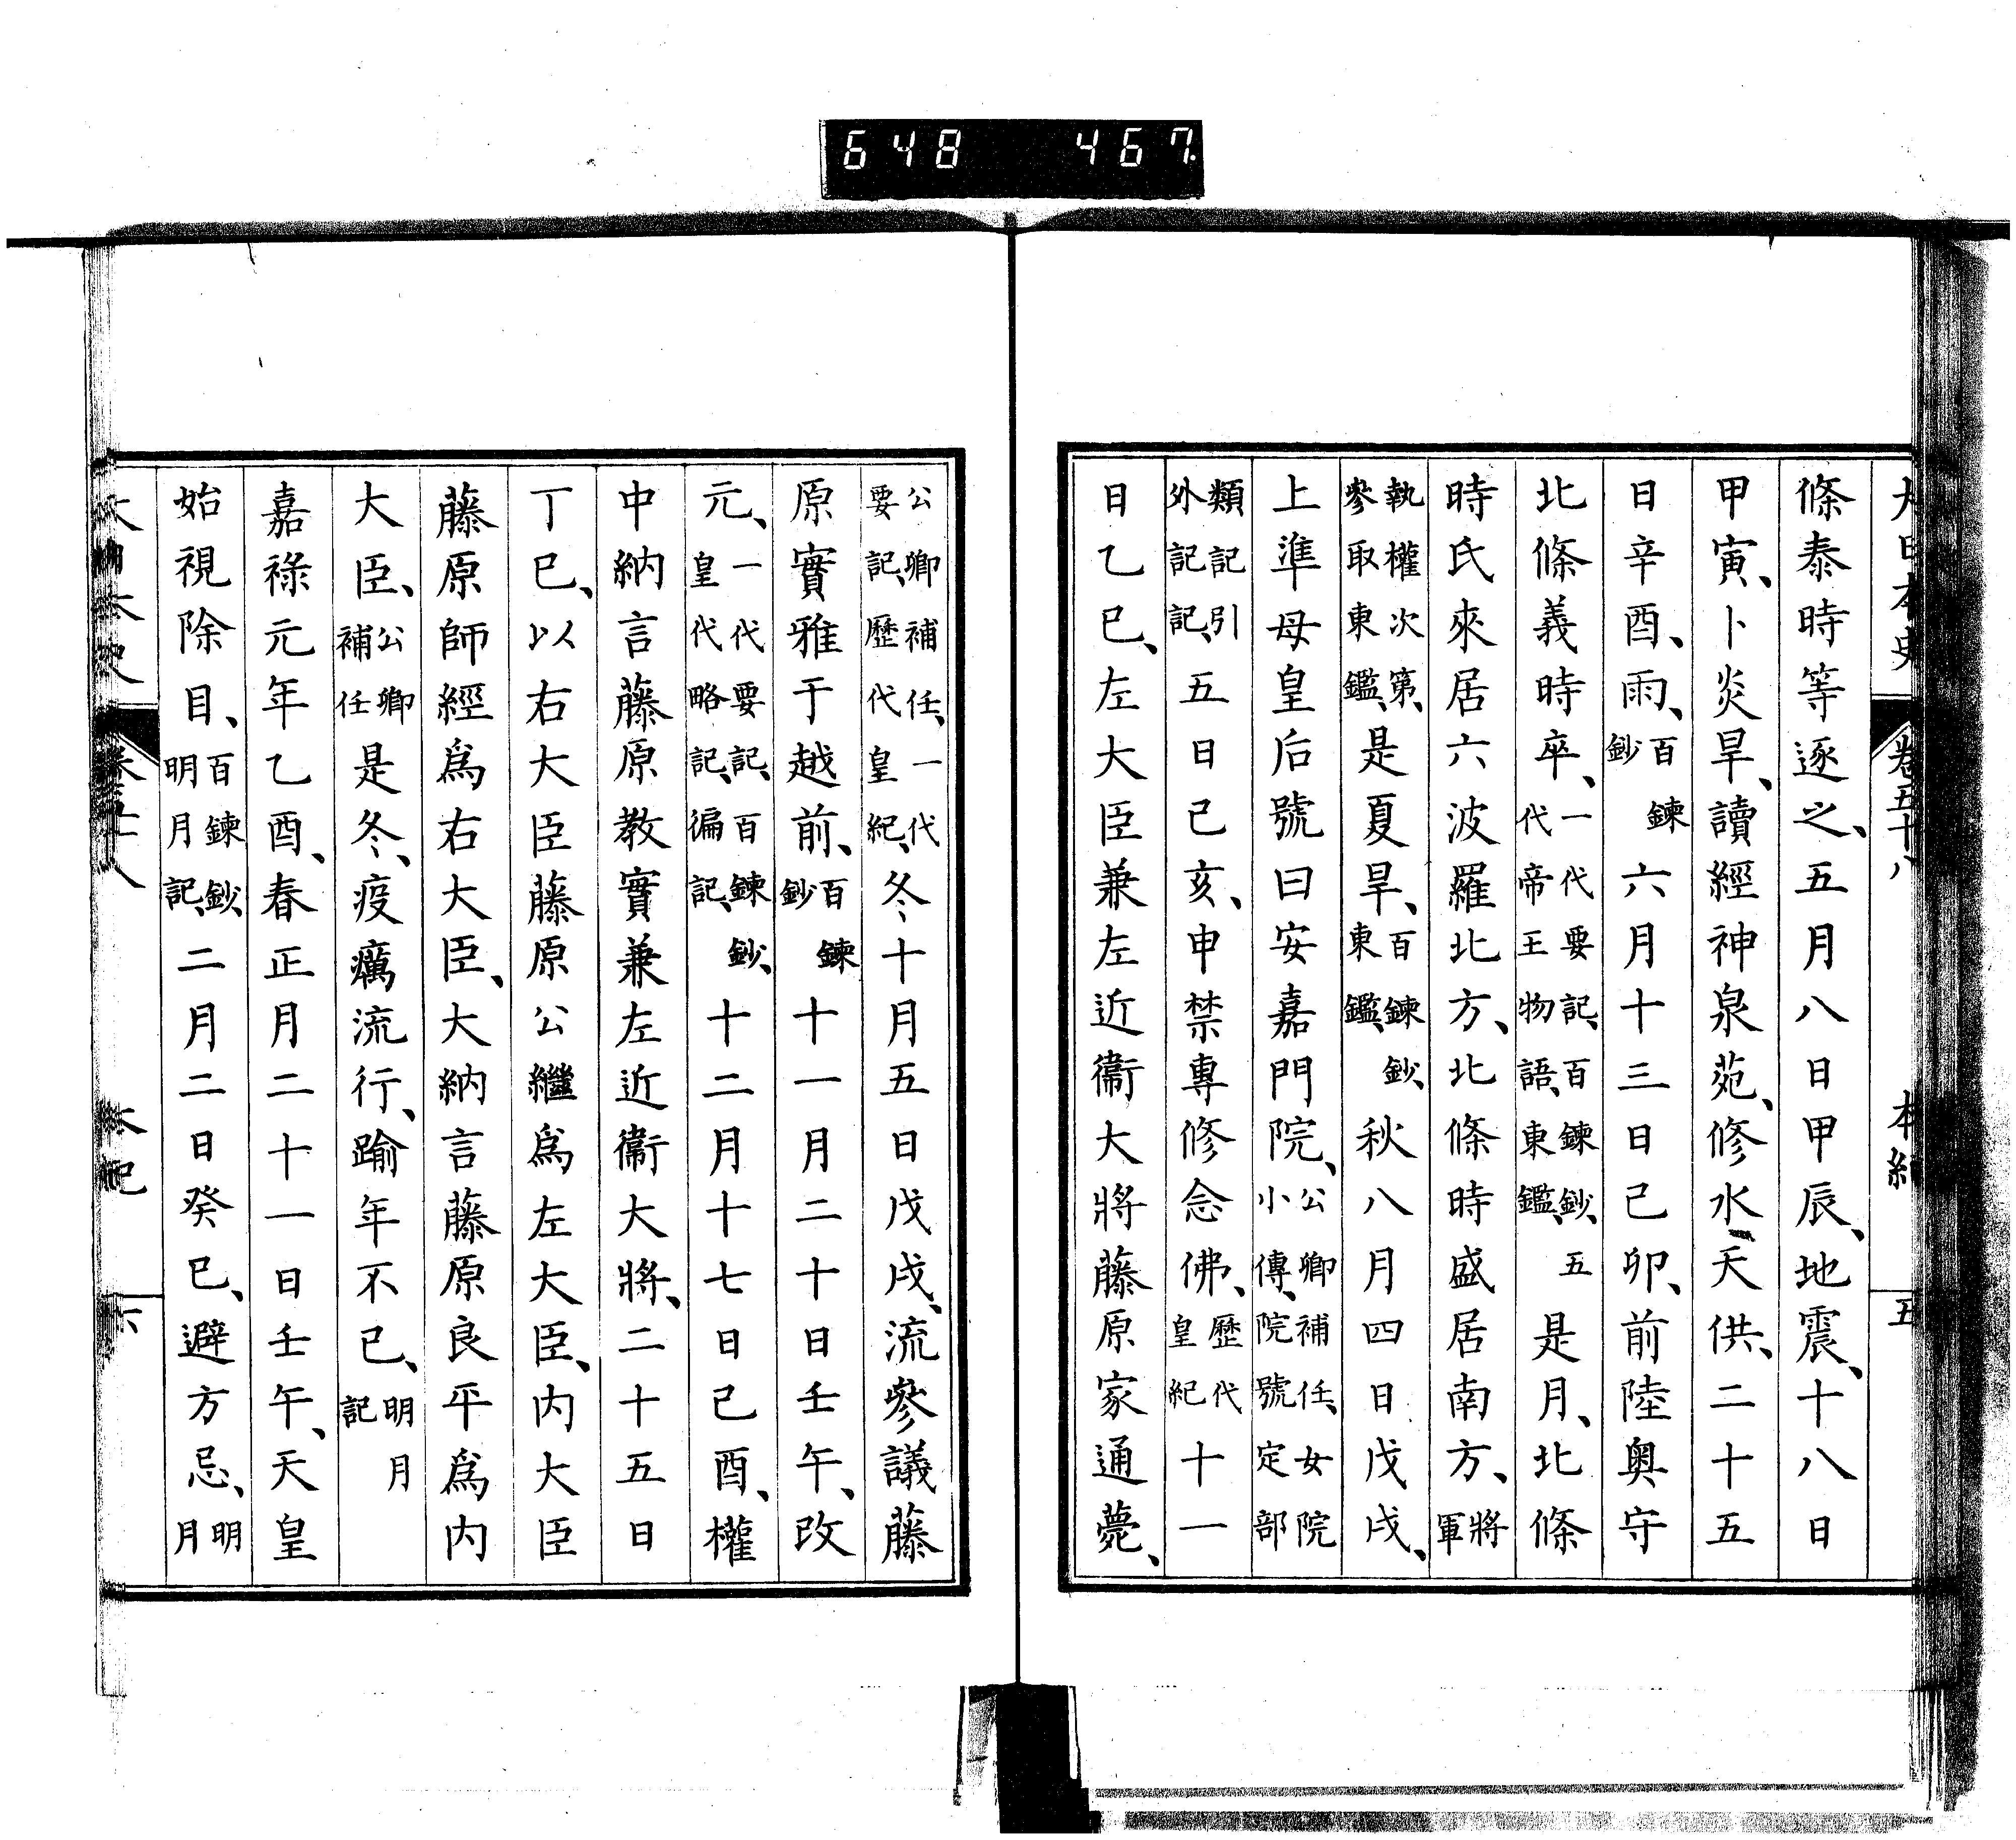 648 467
大日本史 卷五十八 本紀 五
條泰時等逐之、五月八日甲辰、地震、十八日
甲寅、卜炎旱、讀經神泉苑、修水天供、二十五
日辛酉、雨、百鍊鈔六月十三日己卯、前陸奧守
北條義時卒、一代要記、百鍊鈔、五代帝王物語、東鑑、是月、北條
時氏來居六波羅北方、北條時盛居南方、將軍
執權次第、參取東鑑、是夏旱、百鍊鈔、東鑑、秋八月四日戊戌、
上準母皇后號曰安嘉門院、公卿補任、女院小傳、院號定部
類記引外記記、五日己亥、申禁專修念佛、歷代皇紀十一
日乙巳、左大臣兼左近衞大將藤原家通薨、
公卿補任、一代要記、歷代皇紀、冬十月五日戊戌、流參議藤
原實雅于越前、百鍊鈔十一月二十日壬午、改
元、一代要記、百鍊鈔、皇代略記、徧記、十二月十七日己酉、權
中納言藤原教實兼左近衞大將、二十五日
丁巳、以右大臣藤原公繼爲左大臣、內大臣
藤原師經爲右大臣、大納言藤原良平爲內
大臣、公卿補任是冬、疫癘流行、踰年不已、明月記
嘉祿元年乙酉、春正月二十一日壬午、天皇
始視除目、百鍊鈔、明月記、二月二日癸巳、避方忌、明月
大日本史 卷五十八 本紀 六